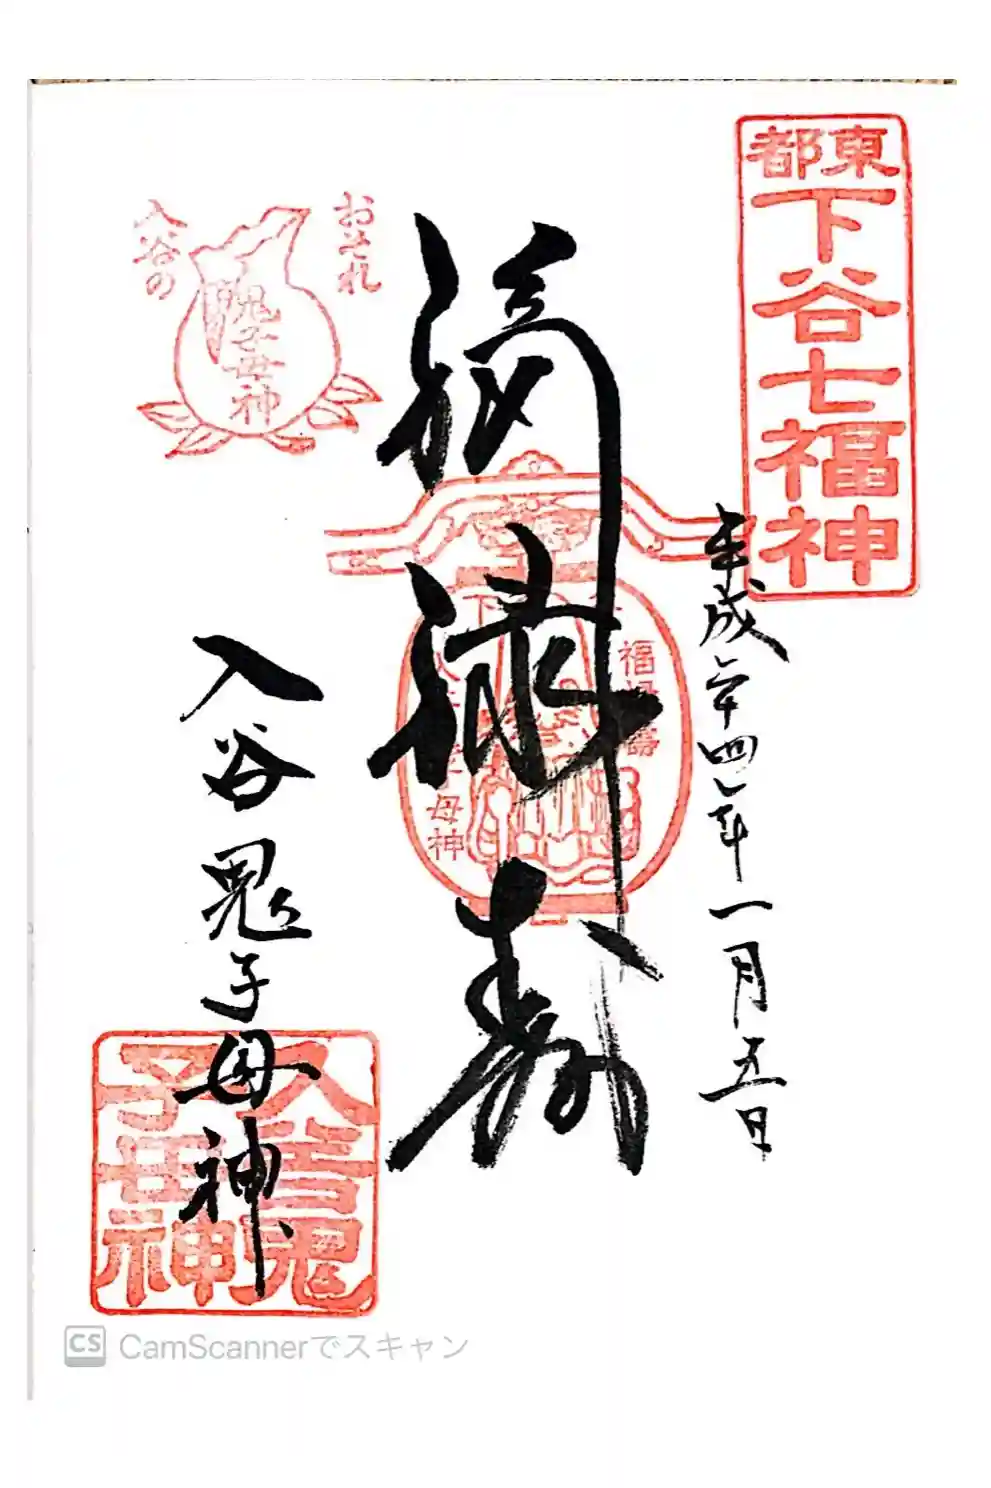 東都
下谷七福神
平成二十四年一月五日
福禄寿
福禄壽
母神
おそれ
入谷の
鬼子母神
入谷鬼子母神
入谷鬼
子母神
CS CamScannerでスキャン